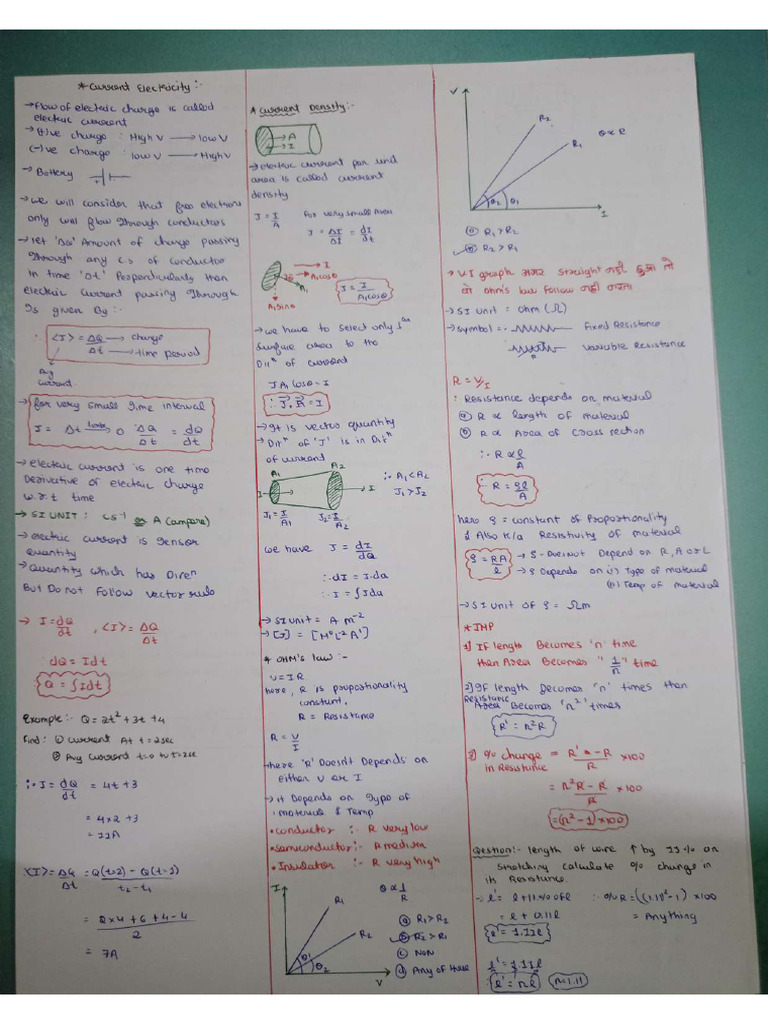 * Current Electricity :-
→ Flow of electric charge is called
electric current
→ (+)ive charge : High V → low V
(-)ve charge : low V → High V
→ Battery
→ we will consider that free electrons
only will flow through conductors
→ let 'ΔQ' Amount of charge passing
through any C.S of conductor
in time 'Δt' Perpendicularly then
electric current passing through
is given By :-
∴ <I> = ΔQ/Δt → charge
→ time period
Avg
current
→ for very small time interval
I = Δt limit→ 0 ΔQ/Δt = dQ/dt
→ electric current is one time
Derivative of electric charge
w.r.t time
→ SI UNIT : CS⁻¹ or A (ampare)
→ electric current is tensor
quantity
→ Quantity which has Diren
But Do not follow vector rule
→ I = dQ/dt , <I> = ΔQ/Δt
∴ dQ = Idt
Q = ∫Idt
Example :- Q = 2t² + 3t + 4
Find : ① current At t = 2sec
② Avg current t=0 to t=2sec
∴ I = dQ/dt = 4t + 3
= 4×2 + 3
= 11A
<I> = ΔQ/Δt = Q(t=2) - Q(t=0)/t₂-t₁
= 2×4 + 6 + 4 - 4/2
= 7A
* Current Density :-
→ A
→ I
→ electric current par unit
area is called current
density
J = I/A for very small Area
J = ΔI/ΔA = dI/dt
θ I
A₁cosθ
A₁sinθ
J = I/A₁cosθ
→ we have to select only ⊥ar
surface area to the
Dirⁿ of current
JA₁cosθ = I
∴ J⃗.A⃗ = I
→ It is vector quantity
→ Dirⁿ of 'J' is in Dirⁿ
of current
A₁ A₂
I → → I
∴ A₁ < A₂
J₁ > J₂
J₁ = I/A₁ J₂ = I/A₂
we have J = dI/da
∴ dI = J.da
∴ I = ∫Jda
→ SI unit = A m⁻²
→ [J] = [M⁰L⁻²A¹]
* OHM's law :-
V = IR
here, R is propotionality
constant.
R = Resistance
R = V/I
→ here 'R' Doesn't Depends on
either V or I
→ it Depends on Type of
material & Temp
• conductor :- R very low
• semiconductor :- R medium
• Insulator :- R very high
I
R₁
R₂
θ₁
θ₂
V
θ ∝ 1/R
ⓐ R₁ > R₂
ⓑ R₂ > R₁
ⓒ NON
ⓓ Any of these
V
R₂
R₁
θ₂ θ₁
I
θ ∝ R
ⓐ R₁ > R₂
ⓑ R₂ > R₁
→ V I graph अगर straight नहीं हुआ तो
वो ohm's law follow नहीं करता
→ SI unit = ohm (Ω)
→ symbol :- Fixed Resistance
variable Resistance
R = V/I
: Resistance depends on material
ⓐ R ∝ length of material
ⓑ R ∝ Area of cross section
∴ R ∝ l/A
∴ R = ρl/A
here ρ = constant of Propotionality
& Also k/a Resistivity of material
ρ = RA/l → ρ - Doesnot Depend on R, A or L
→ ρ Depends on (i) Type of material
(ii) Temp of material
→ SI unit of ρ = Ωm
* IMP
1) If length Becomes 'n' time
then Area Becomes "1/n" time
2) If length Becomes 'n' times then
Resistance
Area Becomes 'n²' times
R' = n²R
3) % change = R' - R/R ×100
in Resistance
= n²R - R/R ×100
= (n²-1)×100
Qestion :- length of wire ↑ by 11% on
stretching calculate % change in
its Resistance.
∴ l' = l + 11% of l ∴ %R = ((1.11)²-1) ×100
= l + 0.11l = Anything
l' = 1.11l
l' = 1.11l
∴ l' = nl n=1.11